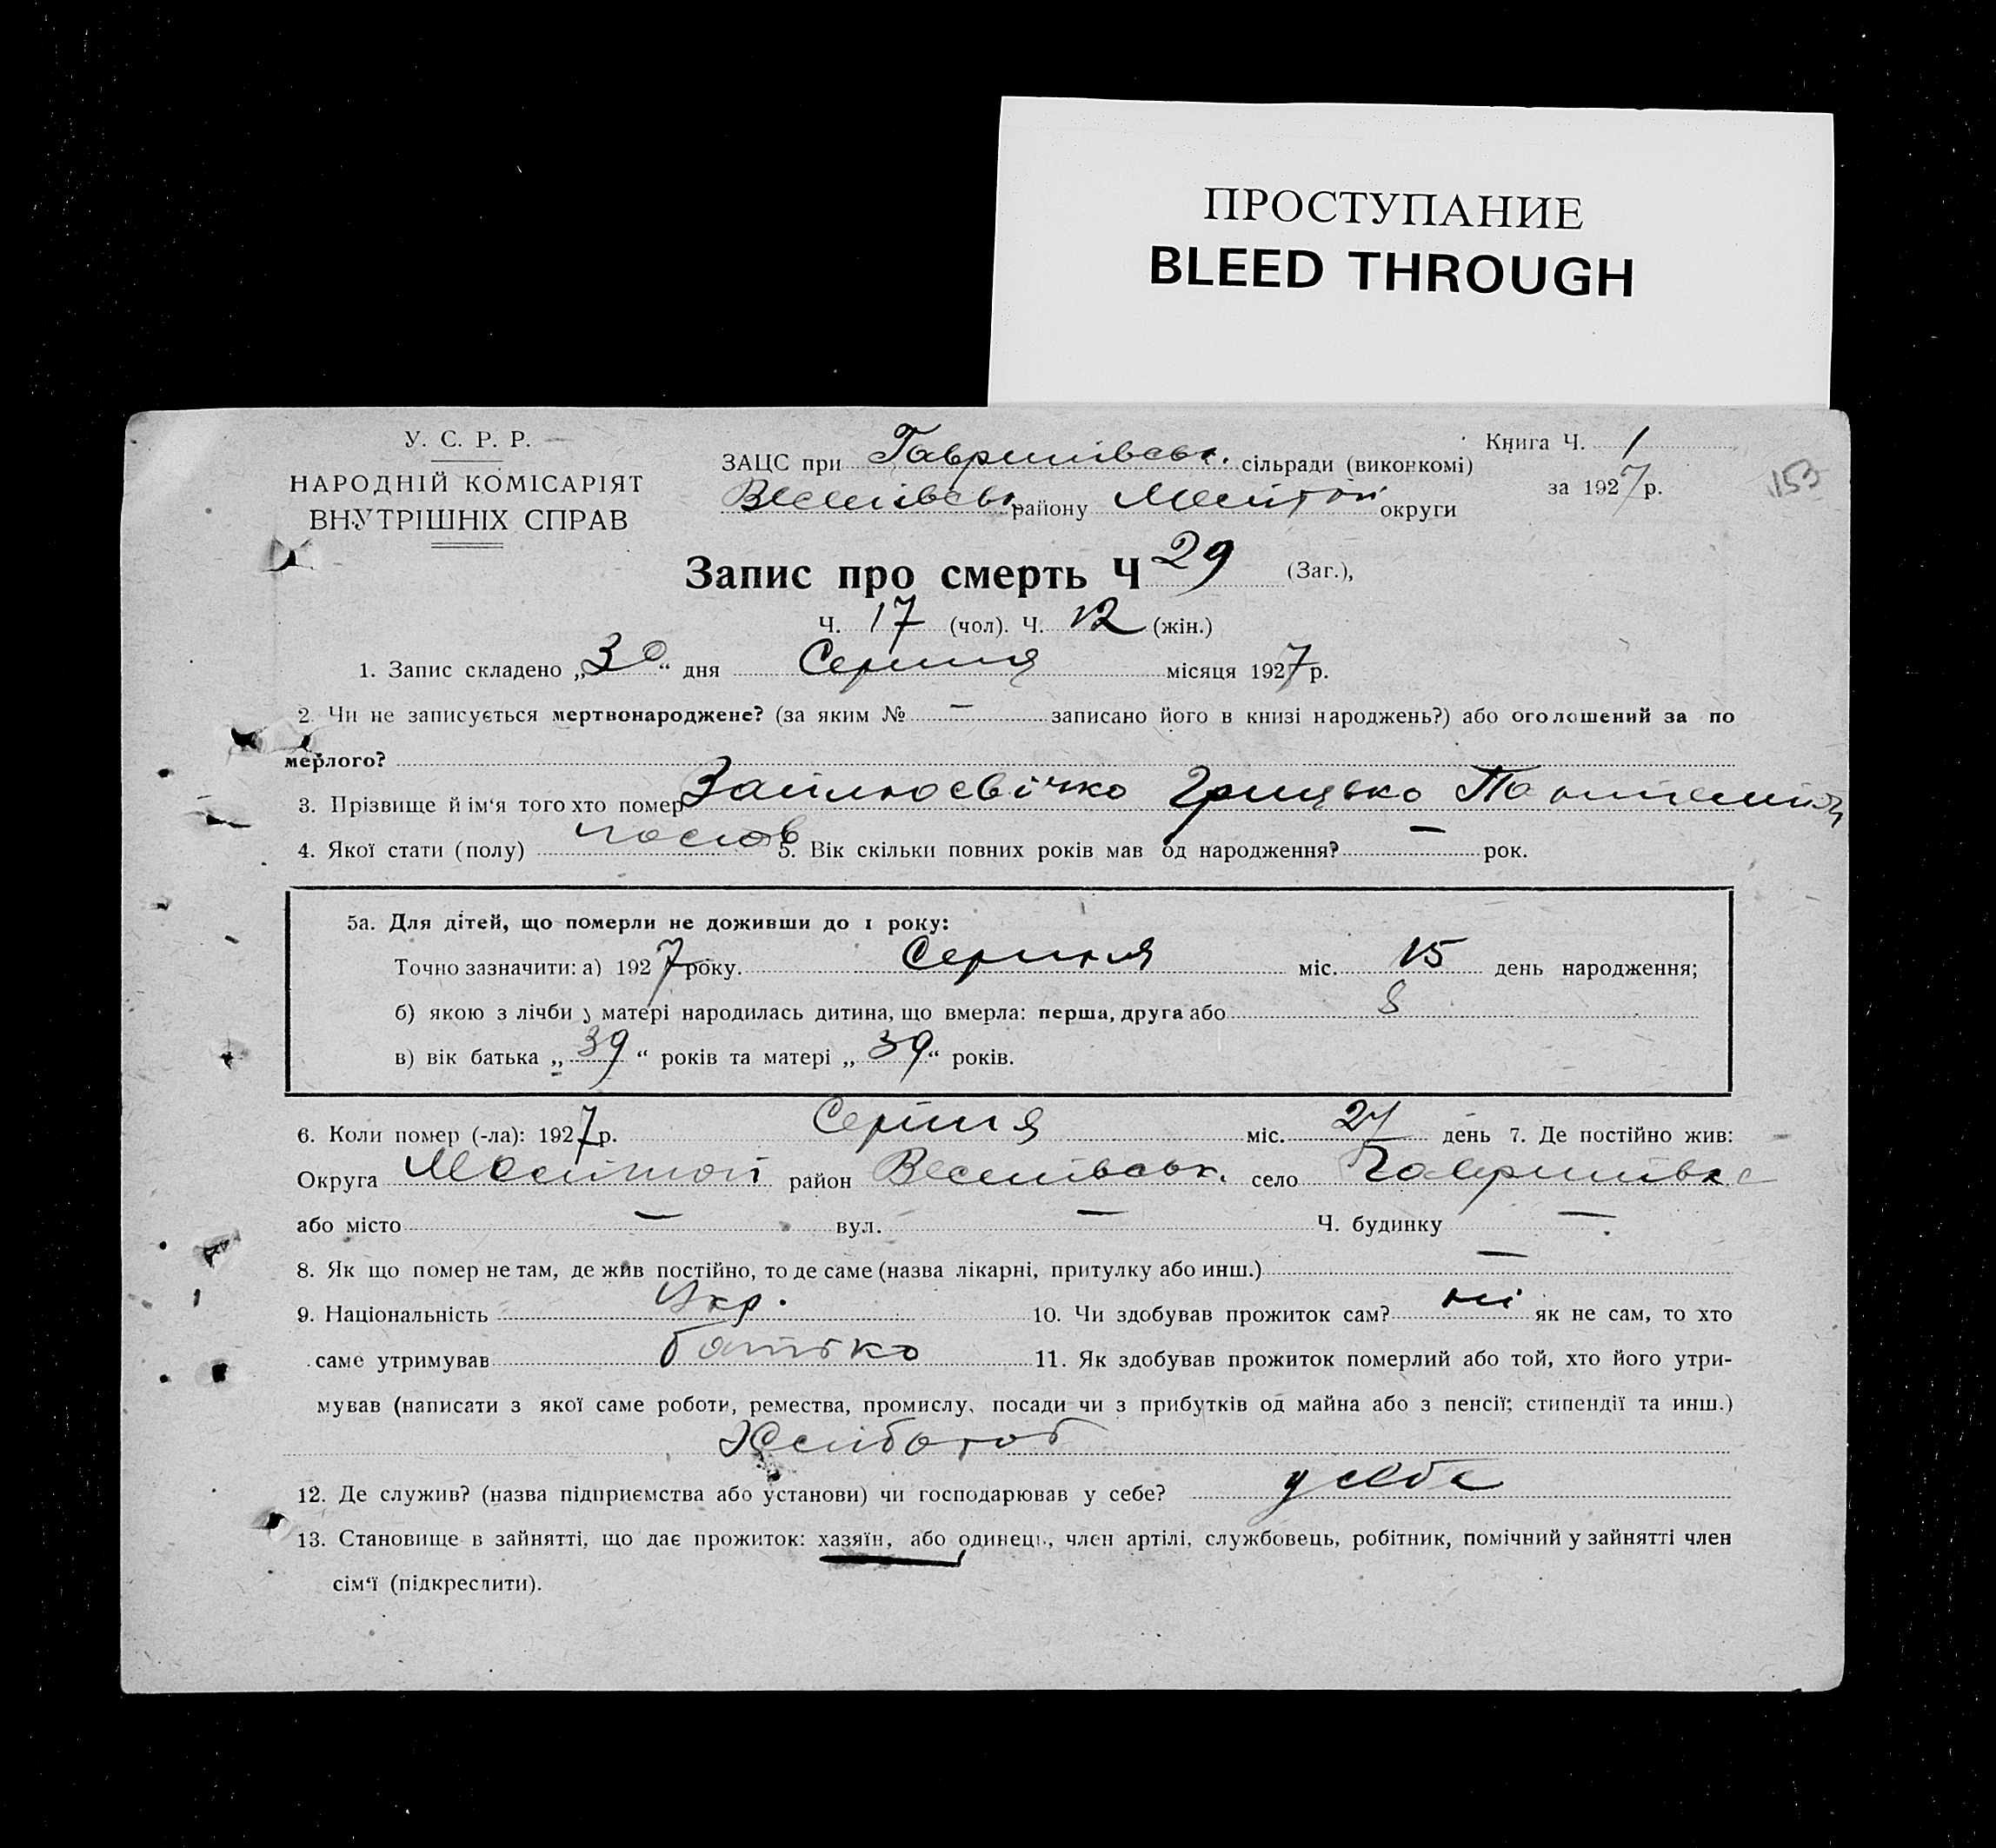 ПРОСТУПАНИЕ
BLEED THROUGH
У. С. Р. Р.
НАРОДНІЙ КОМІСАРІЯТ
ВНУТРІШНІХ СПРАВ
Книга Ч. 1
за 1927 р.
153
ЗАЦС при Гаврилівськ. сільради (виконкомі)
Веселівськ району Меліт округи
Запис про смерть Ч 29 (Заг.),
Ч. 17 (чол). Ч. 12 (жін.)
1. Запис складено „30“ дня Серпня місяця 1927 р.
2. Чи не записується мертвонароджене? (за яким № — записано його в книзі народжень?) або оголошений за по
мерлого?
3. Прізвище й ім‘я того хто помер Грицько
4. Якої стати (полу) 5. Вік скільки повних років мав од народження? — рок.
5а. Для дітей, що померли не доживши до 1 року:
Точно зазначити: а) 1927 року. Серпня міс. 15 день народження;
б) якою з лічби у матері народилась дитина, що вмерла: перша, друга або 8
в) вік батька „39“ років та матері „39“ років.
6. Коли помер (-ла): 1927 р. Серпня міс. день 7. Де постійно жив:
Округа район Веселівськ. село Гаврилівка
або місто — вул. — Ч. будинку —
8. Як що помер не там, де жив постійно, то де саме (назва лікарні, притулку або инш.) —
9. Національність Укр. 10. Чи здобував прожиток сам? ні як не сам, то хто
саме утримував батько 11. Як здобував прожиток померлий або той, хто його утри-
мував (написати з якої саме роботи, ремества, промислу, посади чи з прибутків од майна або з пенсії; стипендії та инш.)
Хлібороб
12. Де служив? (назва підприємства або установи) чи господарював у себе? у себе
13. Становище в зайнятті, що дає прожиток: хазяїн, або одинець, член артілі, службовець, робітник, помічний у зайнятті член
сім‘ї (підкреслити).